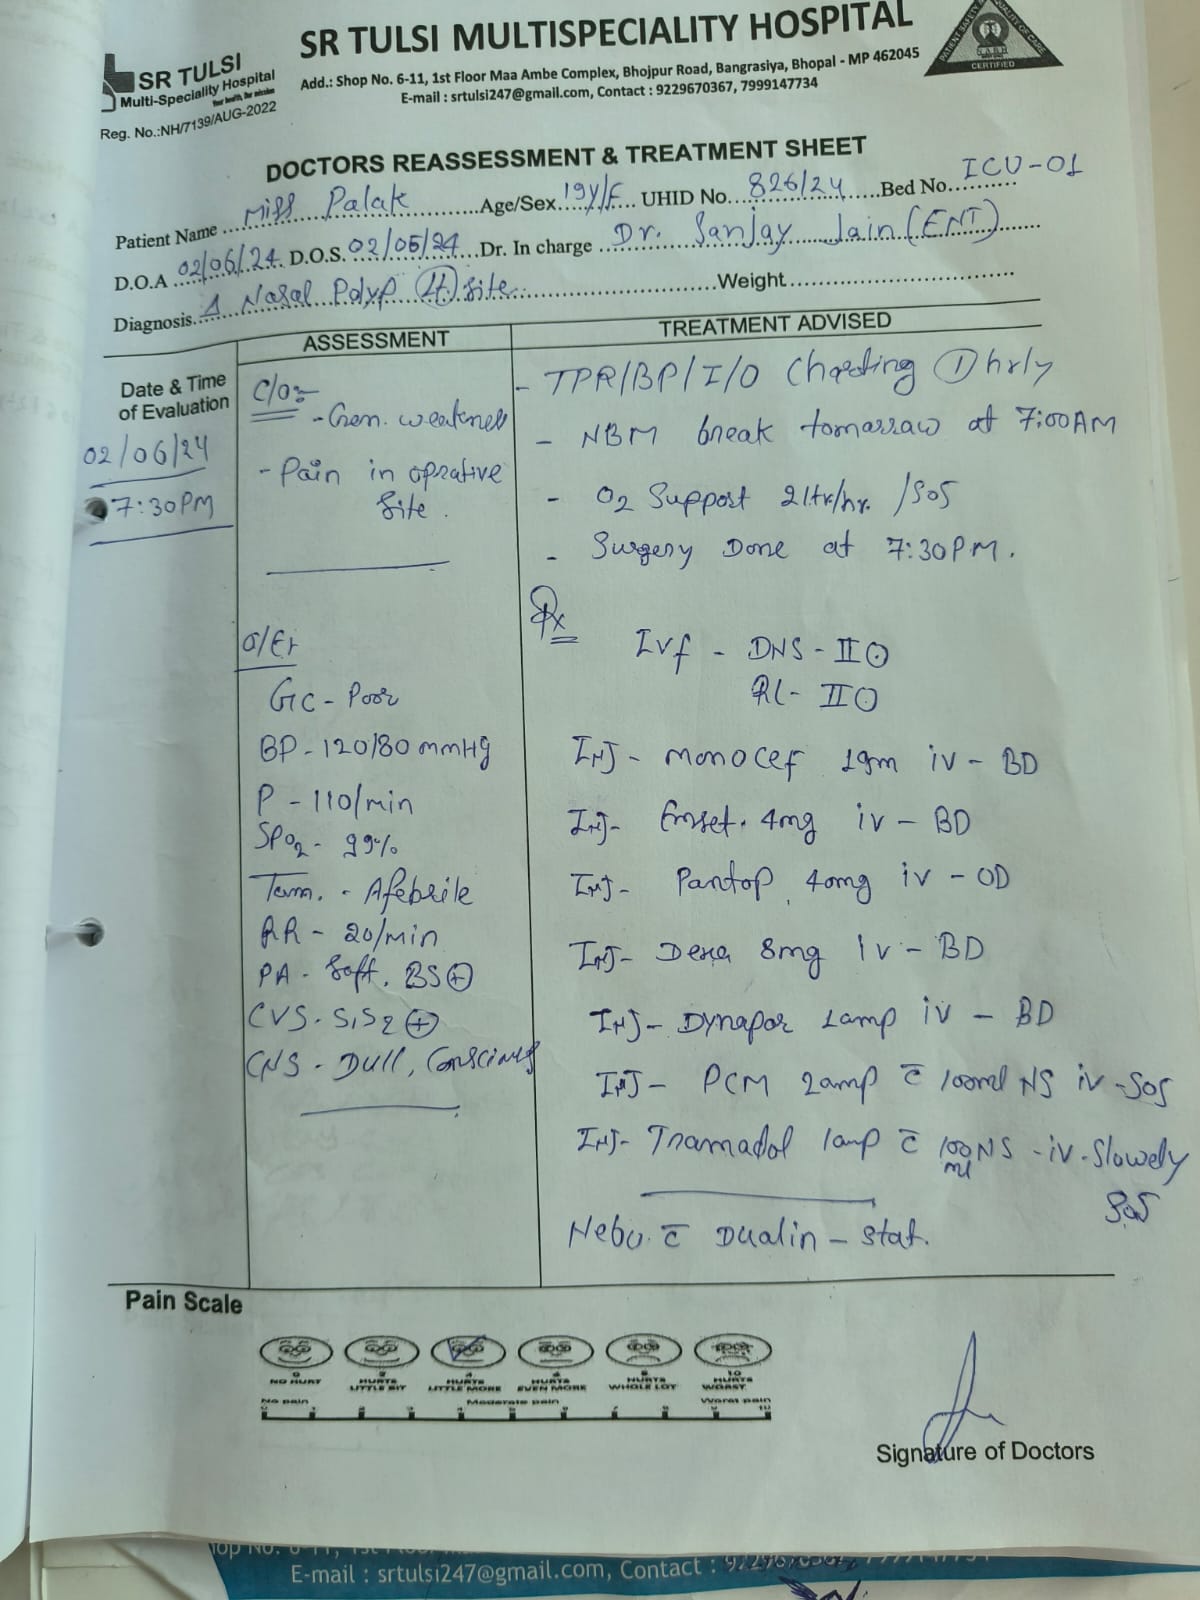 SR TULSI MULTISPECIALITY HOSPITAL
SR TULSI
Multi-Speciality Hospital
Your health, Our mission
Reg. No.:NH/7139/AUG-2022
Add.: Shop No. 6-11, 1st Floor Maa Ambe Complex, Bhojpur Road, Bangrasiya, Bhopal - MP 462045
E-mail : srtulsi247@gmail.com, Contact : 9229670367, 7999147734
CERTIFIED
DOCTORS REASSESSMENT & TREATMENT SHEET
Patient Name Miss Palak Age/Sex 19y/F UHID No. 826/24 Bed No. ICU-01
D.O.A 02/06/24 D.O.S. 02/06/24 Dr. In charge Dr. Sanjay Jain (ENT)
Diagnosis Nasal Polyp (Lt) site Weight
ASSESSMENT
TREATMENT ADVISED
Date & Time
of Evaluation
02/06/24
7:30PM
C/O:-
- Gen. weakness
- Pain in oprative
site.
O/E:
GC - Poor
BP - 120/80 mmHg
P - 110/min
SPO2 - 99%
Tem. - Afebrile
RR - 20/min
PA - Soft. BS (+)
CVS - S1S2 (+)
CNS - Dull, Conscious
- TPR/BP/I/O Charting (1) hrly
- NBM break tomorraw at 7:00AM
- O2 Support 2ltr/hr. /SOS
- Surgery Done at 7:30PM.
Rx
Ivf - DNS - II ⊙
RL - II ⊙
INJ - monocef 1gm iv - BD
INJ - Emset. 4mg iv - BD
INJ - Pantop 40mg iv - OD
INJ - Dexa 8mg iv - BD
INJ - Dynapar 1amp iv - BD
INJ - PCM 2amp c̄ 100ml NS iv - SOS
INJ - Tramadol 1amp c̄ 100 ml NS - iv - Slowely
SOS
Nebu. c̄ Dualin - stat.
Pain Scale
0 2 4 6 8 10
NO HURT
HURTS LITTLE BIT
HURTS LITTLE MORE
HURTS EVEN MORE
HURTS WHOLE LOT
HURTS WORST
No pain Moderate pain Worst pain
Signature of Doctors
E-mail : srtulsi247@gmail.com, Contact :